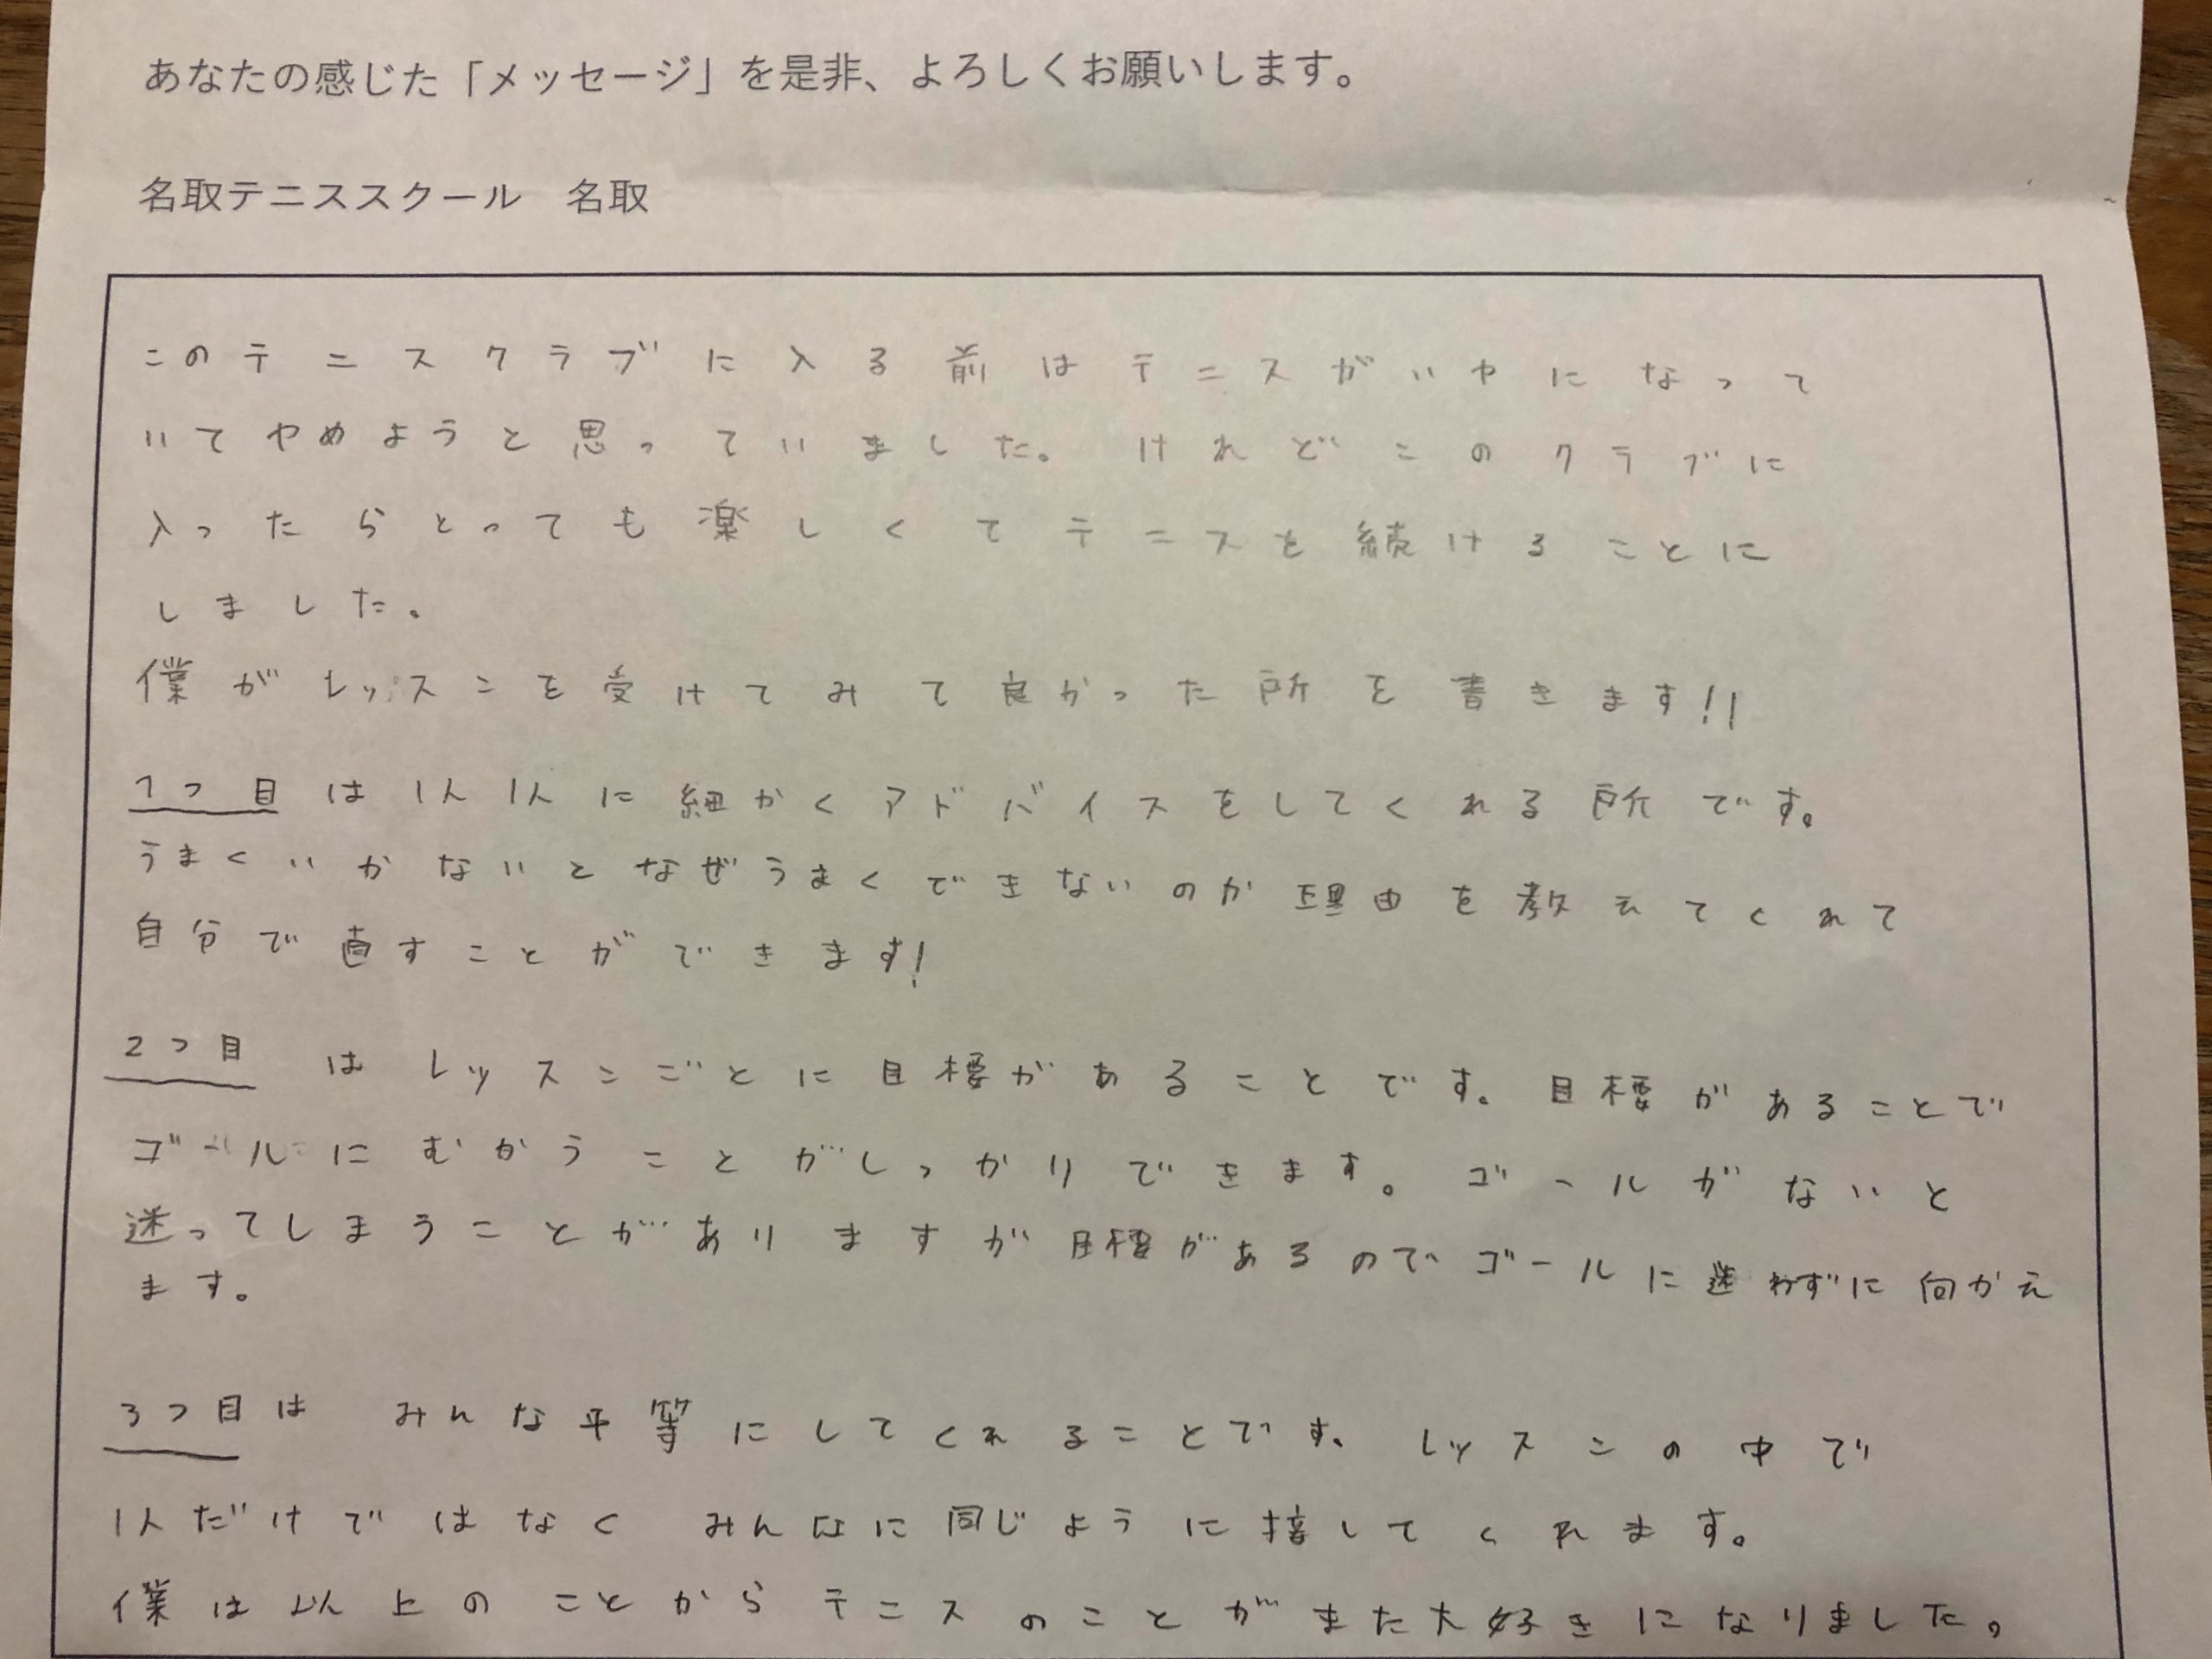 あなたの感じた「メッセージ」を是非、よろしくお願いします。
名取テニススクール　名取
このテニスクラブに入る前はテニスがいやになって
いてやめようと思っていました。けれどこのクラブに
入ったらとっても楽しくてテニスを続けることに
しました。
僕がレッスンを受けてみて良かった所を書きます!!
1つ目は1人1人に細かくアドバイスをしてくれる所です。
うまくいかないとなぜうまくできないのか理由を教えてくれて
自分で直すことができます!
2つ目はレッスンごとに目標があることです。目標があることで
ゴールにむかうことがしっかりできます。ゴールがないと
迷ってしまうことがありますが目標があるのでゴールに迷わずに向かえ
ます。
3つ目はみんな平等にしてくれることです。レッスンの中で
1人だけではなくみんなに同じように接してくれます。
僕は以上のことからテニスのことがまた大好きになりました。